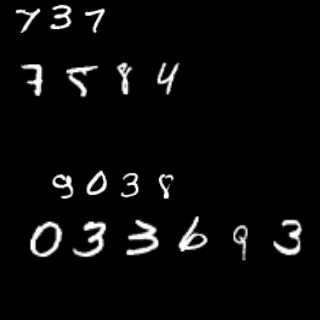 737
7584
9038
033693